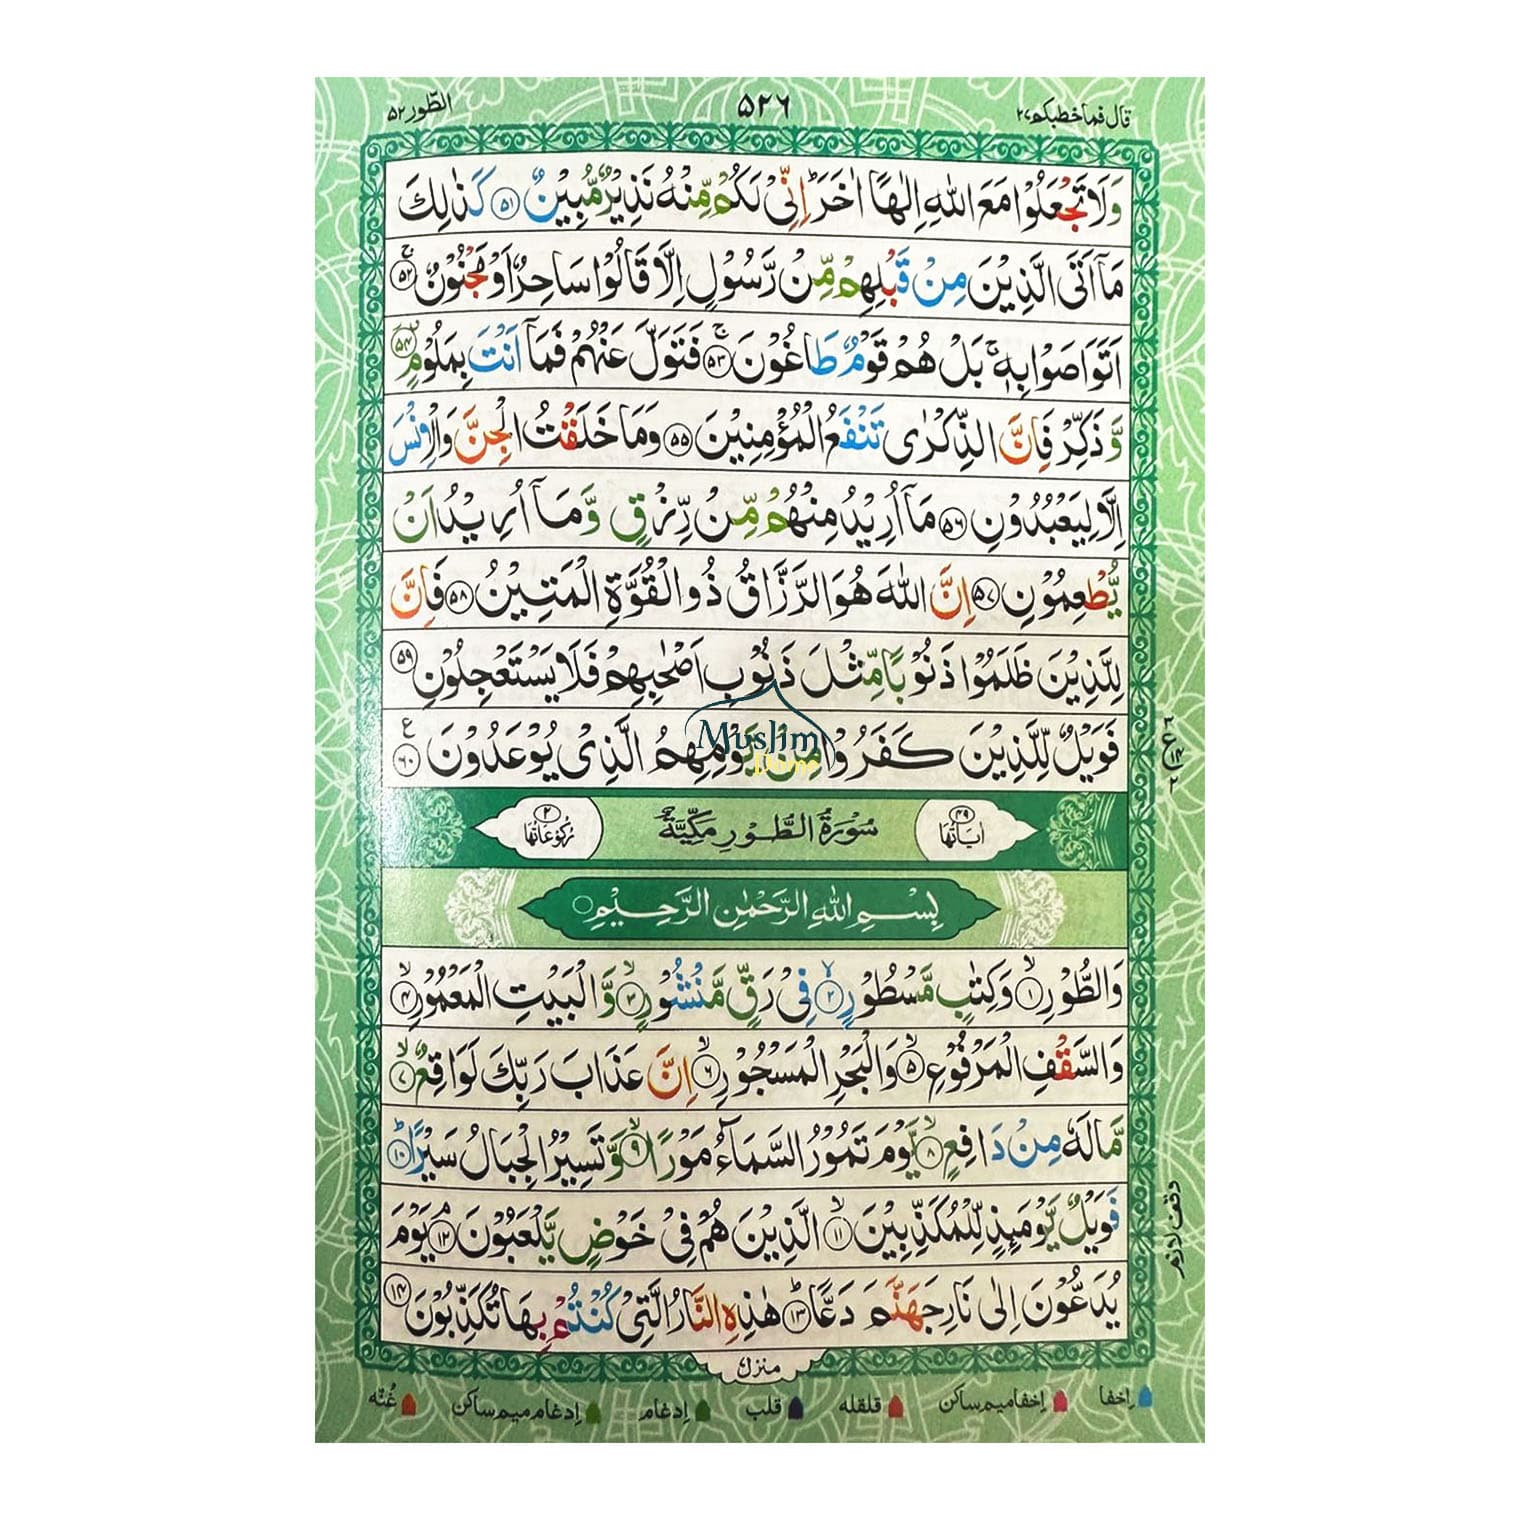 قال فما خطبكم ٢٧ ٥٢٦ الطّور ٥٢
وَلَا تَجْعَلُوْا مَعَ اللّٰهِ اِلٰهًا اٰخَرَ ؕ اِنِّیْ لَكُمْ مِّنْهُ نَذِیْرٌ مُّبِیْنٌ ۵۱ كَذٰلِكَ
مَاۤ اَتَی الَّذِیْنَ مِنْ قَبْلِهِمْ مِّنْ رَّسُوْلٍ اِلَّا قَالُوْا سَاحِرٌ اَوْ مَجْنُوْنٌ ۵۲ ۚ
اَتَوَاصَوْا بِهٖ ۚ بَلْ هُمْ قَوْمٌ طَاغُوْنَ ۵۳ ۚ فَتَوَلَّ عَنْهُمْ فَمَاۤ اَنْتَ بِمَلُوْمٍ ۵۴
وَّ ذَكِّرْ فَاِنَّ الذِّكْرٰی تَنْفَعُ الْمُؤْمِنِیْنَ ۵۵ وَمَا خَلَقْتُ الْجِنَّ وَالْاِنْسَ
اِلَّا لِیَعْبُدُوْنِ ۵۶ مَاۤ اُرِیْدُ مِنْهُمْ مِّنْ رِّزْقٍ وَّ مَاۤ اُرِیْدُ اَنْ
یُّطْعِمُوْنِ ۵۷ اِنَّ اللّٰهَ هُوَ الرَّزَّاقُ ذُو الْقُوَّةِ الْمَتِیْنُ ۵۸ فَاِنَّ
لِلَّذِیْنَ ظَلَمُوْا ذَنُوْبًا مِّثْلَ ذَنُوْبِ اَصْحٰبِهِمْ فَلَا یَسْتَعْجِلُوْنِ ۵۹
فَوَیْلٌ لِّلَّذِیْنَ كَفَرُوْا مِنْ یَّوْمِهِمُ الَّذِیْ یُوْعَدُوْنَ ۶۰ ع
Muslim
اٰیَاتُهَا ۴۹ سُوْرَةُ الطُّوْرِ مَكِّیَّةٌ رُكُوْعَاتُهَا ۲
بِسْمِ اللّٰهِ الرَّحْمٰنِ الرَّحِیْمِ
وَالطُّوْرِ ۱ ۙ وَكِتٰبٍ مَّسْطُوْرٍ ۲ ۙ فِیْ رَقٍّ مَّنْشُوْرٍ ۳ ۙ وَّ الْبَیْتِ الْمَعْمُوْرِ ۴ ۙ
وَالسَّقْفِ الْمَرْفُوْعِ ۵ ۙ وَالْبَحْرِ الْمَسْجُوْرِ ۶ ۙ اِنَّ عَذَابَ رَبِّكَ لَوَاقِعٌ ۷ ۙ
مَّا لَهٗ مِنْ دَافِعٍ ۸ ۙ یَّوْمَ تَمُوْرُ السَّمَآءُ مَوْرًا ۹ ۙ وَّ تَسِیْرُ الْجِبَالُ سَیْرًا ۱۰ ؕ
فَوَیْلٌ یَّوْمَىِٕذٍ لِّلْمُكَذِّبِیْنَ ۱۱ ۙ الَّذِیْنَ هُمْ فِیْ خَوْضٍ یَّلْعَبُوْنَ ۱۲ ۘ یَوْمَ
یُدَعُّوْنَ اِلٰی نَارِ جَهَنَّمَ دَعًّا ۱۳ ؕ هٰذِهِ النَّارُ الَّتِیْ كُنْتُمْ بِهَا تُكَذِّبُوْنَ ۱۴
وقف لازم
اِخفا اِخفا میم ساكن قلقله قلب اِدغام اِدغام میم ساكن غُنّه